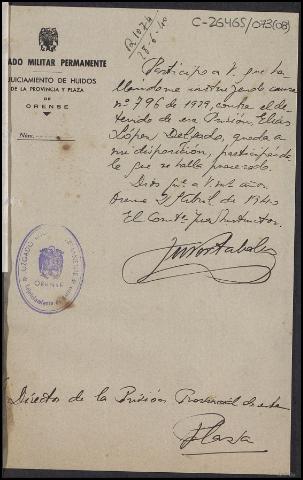 C-26465/073(08)
R 1074
28-6-40
ADO MILITAR PERMANENTE
JUICIAMIENTO DE HUIDOS
DE LA PROVINCIA Y PLAZA
DE
ORENSE
Núm.
Participo a V. que ha
llandome instruyendo causa
nº 796 de 1939, contra el de
tenido de esa Prisión Elías
López Delgado, queda a
mi disposición, participándo
le que se halla procesado.
Dios gue a V. ms. años.
Orense Abril de 1940
El Comte Juez Instructor.
ORENSE
Director de la Prisión Provincial de esta
Plaza